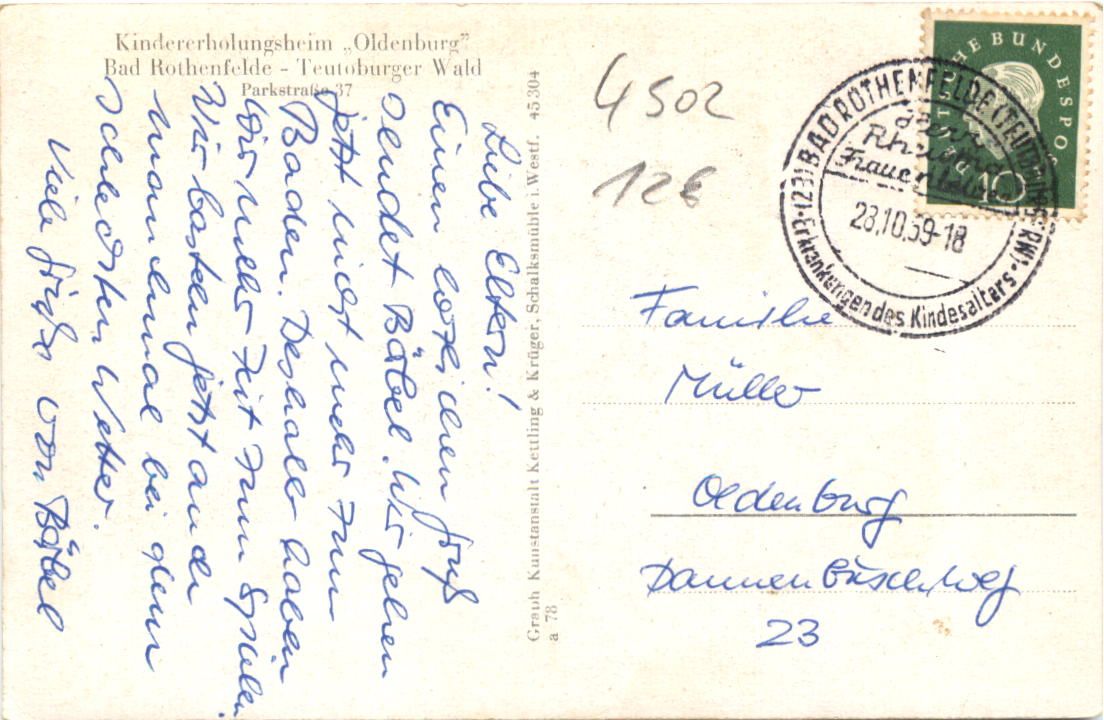 Kindererholungsheim „Oldenburg”
Bad Rothenfelde - Teutoburger Wald
Parkstraße 37
Liebe Eltern!
Einen herzlichen Gruß
sendet Bärbel. Wir gehen
jetzt nicht mehr zum
Baden. Deshalb haben
wir mehr Zeit zum Spielen.
Wir basteln jetzt an den
manchmal bei dem
schlechten Wetter.
Viele Grüße von Bärbel
Graph Kunstanstalt Kettling & Krüger, Schalksmühle i. Westf. 45304
a 78
4502
12€
HE BUNDESPOS
10
(23) BAD ROTHENFELDE (TEUTOBURGERW)
gegen
Rheuma
Frauenleiden
28.10.59-18
Erkrankungen des Kindesalters
Familie
Müller
Oldenburg
Dannenbüschweg
23